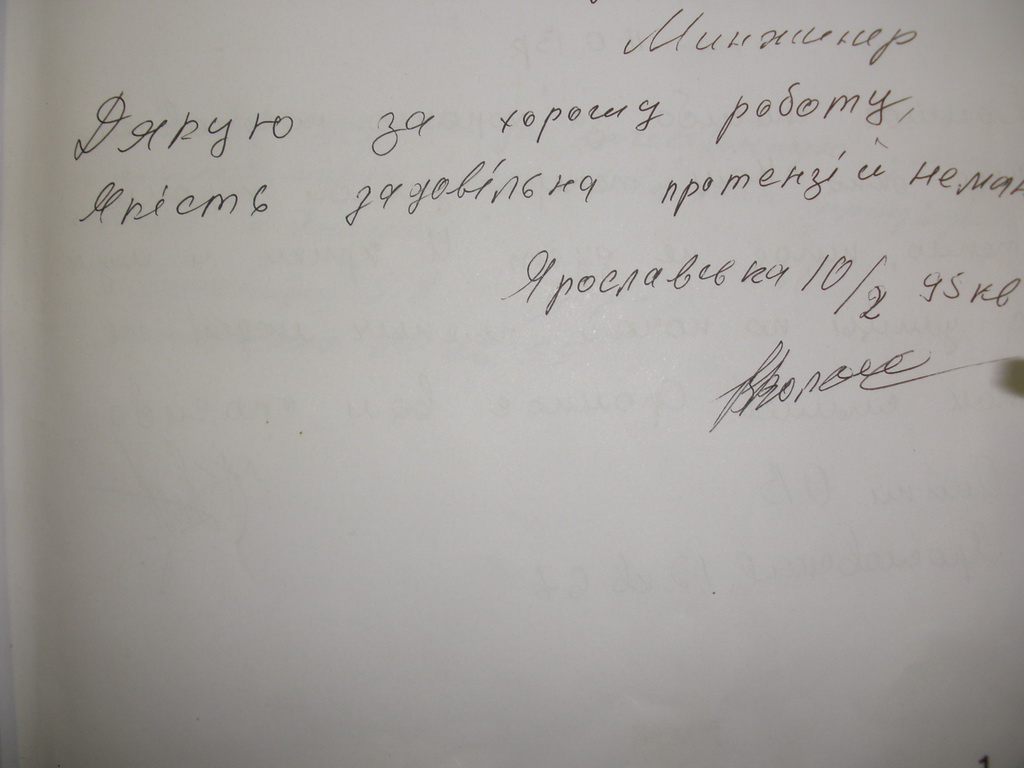 Минжинер
Дякую за хорошу роботу,
Якість задовільна протензій немає
Ярославська 10/2 95 кв
1